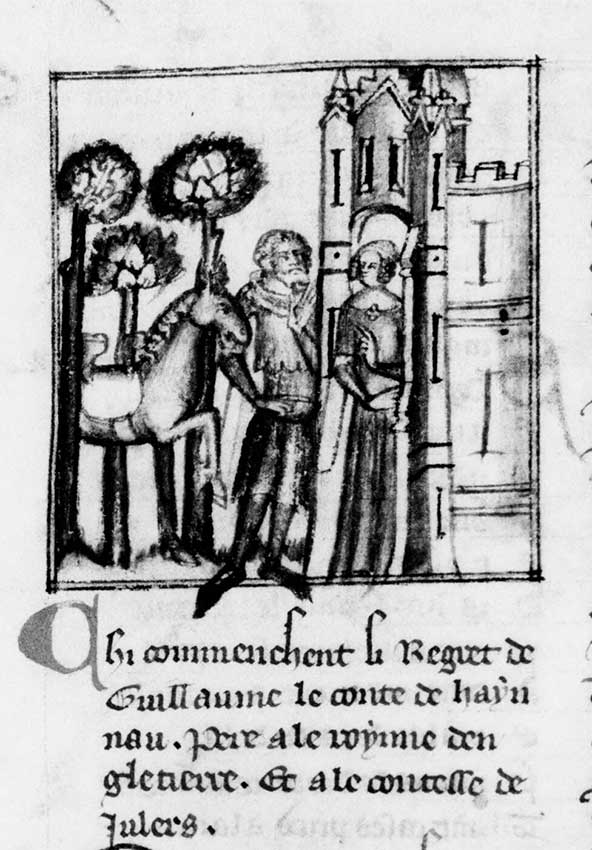 Chi commenchent li Regret de
Guillaume le conte de haÿn
nau. Pere a le roÿnne den
gletierre. Et a le contesse de
Julers.